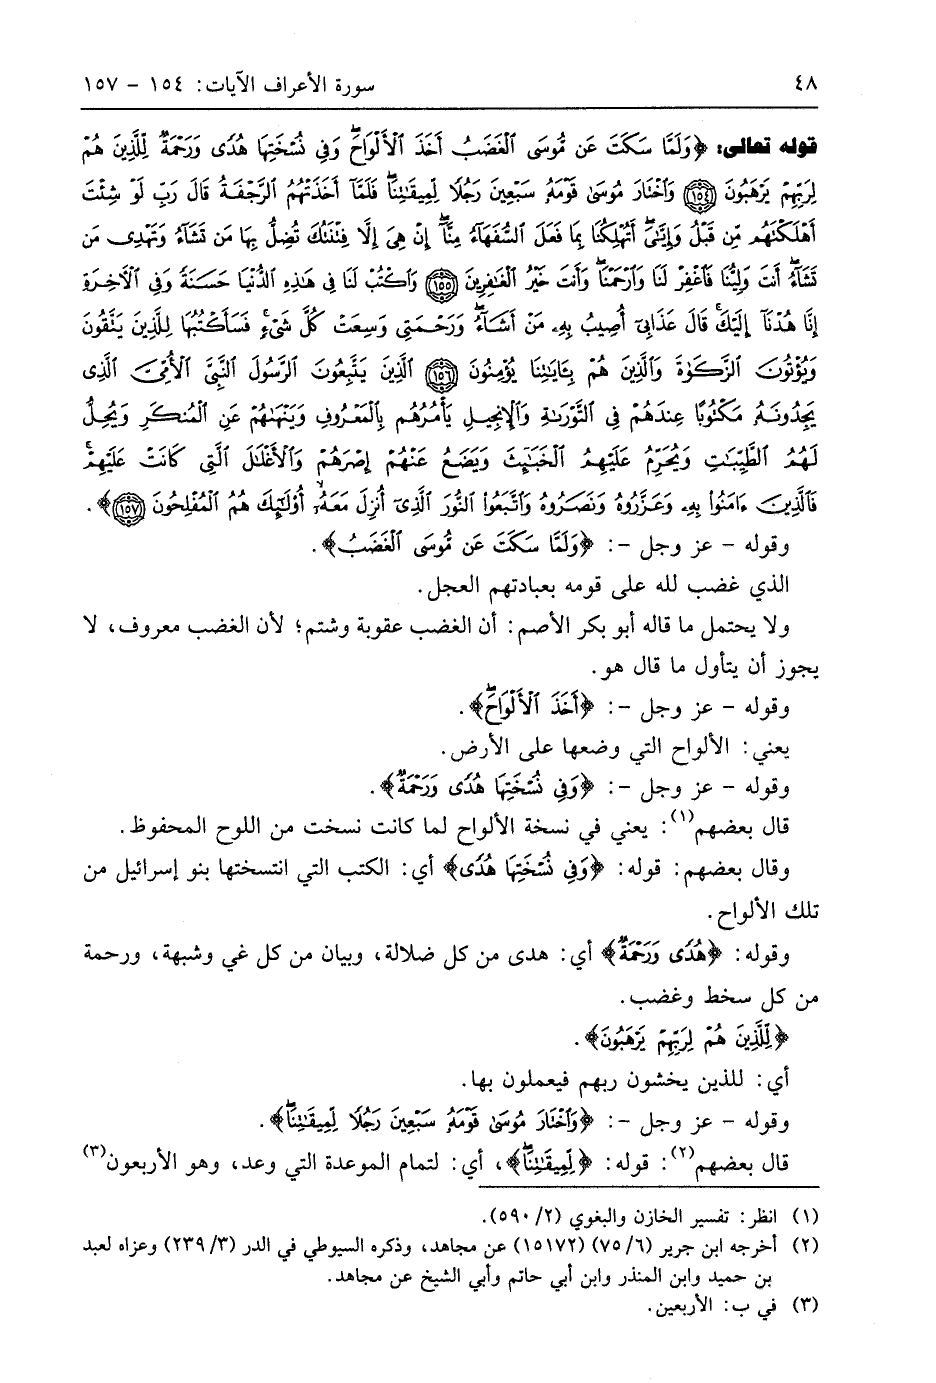 ٤٨ سورة الأعراف الآيات: ١٥٤ - ١٥٧
قوله تعالى: ﴿وَلَمَّا سَكَتَ عَن مُّوسَى ٱلْغَضَبُ أَخَذَ ٱلْأَلْوَاحَۖ وَفِى نُسْخَتِهَا هُدًى وَرَحْمَةٌ لِّلَّذِينَ هُمْ
لِرَبِّهِمْ يَرْهَبُونَ ﴿١٥٤﴾ وَٱخْتَارَ مُوسَىٰ قَوْمَهُۥ سَبْعِينَ رَجُلًا لِّمِيقَـٰتِنَاۖ فَلَمَّآ أَخَذَتْهُمُ ٱلرَّجْفَةُ قَالَ رَبِّ لَوْ شِئْتَ
أَهْلَكْتَهُم مِّن قَبْلُ وَإِيَّـٰىَۖ أَتُهْلِكُنَا بِمَا فَعَلَ ٱلسُّفَهَآءُ مِنَّآۖ إِنْ هِىَ إِلَّا فِتْنَتُكَ تُضِلُّ بِهَا مَن تَشَآءُ وَتَهْدِى مَن
تَشَآءُۖ أَنتَ وَلِيُّنَا فَٱغْفِرْ لَنَا وَٱرْحَمْنَاۖ وَأَنتَ خَيْرُ ٱلْغَـٰفِرِينَ ﴿١٥٥﴾ وَٱكْتُبْ لَنَا فِى هَـٰذِهِ ٱلدُّنْيَا حَسَنَةً وَفِى ٱلْآخِرَةِ
إِنَّا هُدْنَآ إِلَيْكَۚ قَالَ عَذَابِىٓ أُصِيبُ بِهِۦ مَنْ أَشَآءُۖ وَرَحْمَتِى وَسِعَتْ كُلَّ شَىْءٍۚ فَسَأَكْتُبُهَا لِلَّذِينَ يَتَّقُونَ
وَيُؤْتُونَ ٱلزَّكَوٰةَ وَٱلَّذِينَ هُم بِـَٔايَـٰتِنَا يُؤْمِنُونَ ﴿١٥٦﴾ ٱلَّذِينَ يَتَّبِعُونَ ٱلرَّسُولَ ٱلنَّبِىَّ ٱلْأُمِّىَّ ٱلَّذِى
يَجِدُونَهُۥ مَكْتُوبًا عِندَهُمْ فِى ٱلتَّوْرَىٰةِ وَٱلْإِنجِيلِ يَأْمُرُهُم بِٱلْمَعْرُوفِ وَيَنْهَىٰهُمْ عَنِ ٱلْمُنكَرِ وَيُحِلُّ
لَهُمُ ٱلطَّيِّبَـٰتِ وَيُحَرِّمُ عَلَيْهِمُ ٱلْخَبَـٰٓئِثَ وَيَضَعُ عَنْهُمْ إِصْرَهُمْ وَٱلْأَغْلَـٰلَ ٱلَّتِى كَانَتْ عَلَيْهِمْۚ
فَٱلَّذِينَ ءَامَنُوا۟ بِهِۦ وَعَزَّرُوهُ وَنَصَرُوهُ وَٱتَّبَعُوا۟ ٱلنُّورَ ٱلَّذِىٓ أُنزِلَ مَعَهُۥٓۙ أُو۟لَـٰٓئِكَ هُمُ ٱلْمُفْلِحُونَ ﴿١٥٧﴾﴾.
وقوله - عز وجل -: ﴿وَلَمَّا سَكَتَ عَن مُّوسَى ٱلْغَضَبُ﴾.
الذي غضب لله على قومه بعبادتهم العجل.
ولا يحتمل ما قاله أبو بكر الأصم: أن الغضب عقوبة وشتم؛ لأن الغضب معروف، لا
يجوز أن يتأول ما قال هو.
وقوله - عز وجل -: ﴿أَخَذَ ٱلْأَلْوَاحَۖ﴾.
يعني: الألواح التي وضعها على الأرض.
وقوله - عز وجل -: ﴿وَفِى نُسْخَتِهَا هُدًى وَرَحْمَةٌ﴾.
قال بعضهم(١): يعني في نسخة الألواح لما كانت نسخت من اللوح المحفوظ.
وقال بعضهم: قوله: ﴿وَفِى نُسْخَتِهَا هُدًى﴾ أي: الكتب التي انتسختها بنو إسرائيل من
تلك الألواح.
وقوله: ﴿هُدًى وَرَحْمَةٌ﴾ أي: هدى من كل ضلالة، وبيان من كل غي وشبهة، ورحمة
من كل سخط وغضب.
﴿لِّلَّذِينَ هُمْ لِرَبِّهِمْ يَرْهَبُونَ﴾.
أي: للذين يخشون ربهم فيعملون بها.
وقوله - عز وجل -: ﴿وَٱخْتَارَ مُوسَىٰ قَوْمَهُۥ سَبْعِينَ رَجُلًا لِّمِيقَـٰتِنَاۖ﴾.
قال بعضهم(٢): قوله: ﴿لِّمِيقَـٰتِنَاۖ﴾، أي: لتمام الموعدة التي وعد، وهو الأربعون(٣)
(١) انظر: تفسير الخازن والبغوي (٢/ ٥٩٠).
(٢) أخرجه ابن جرير (٦/ ٧٥) (١٥١٧٢) عن مجاهد، وذكره السيوطي في الدر (٣/ ٢٣٩) وعزاه لعبد
بن حميد وابن المنذر وابن أبي حاتم وأبي الشيخ عن مجاهد.
(٣) في ب: الأربعين.